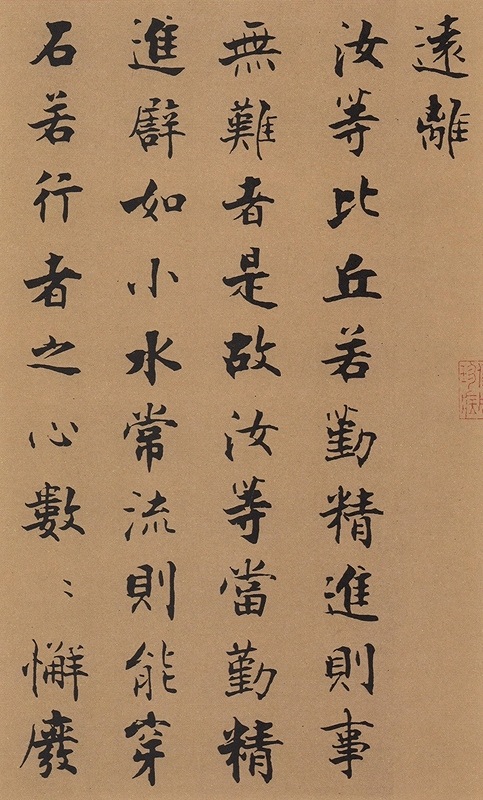 遠離
汝等比丘若勤精進則事
無難者是故汝等當勤精
進譬如小水常流則能穿
石若行者之心數〻懈廢